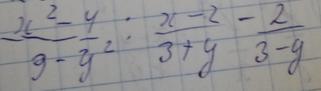 \frac{x^2-4}{9-y^2} : \frac{x-2}{3+y} - \frac{2}{3-y}